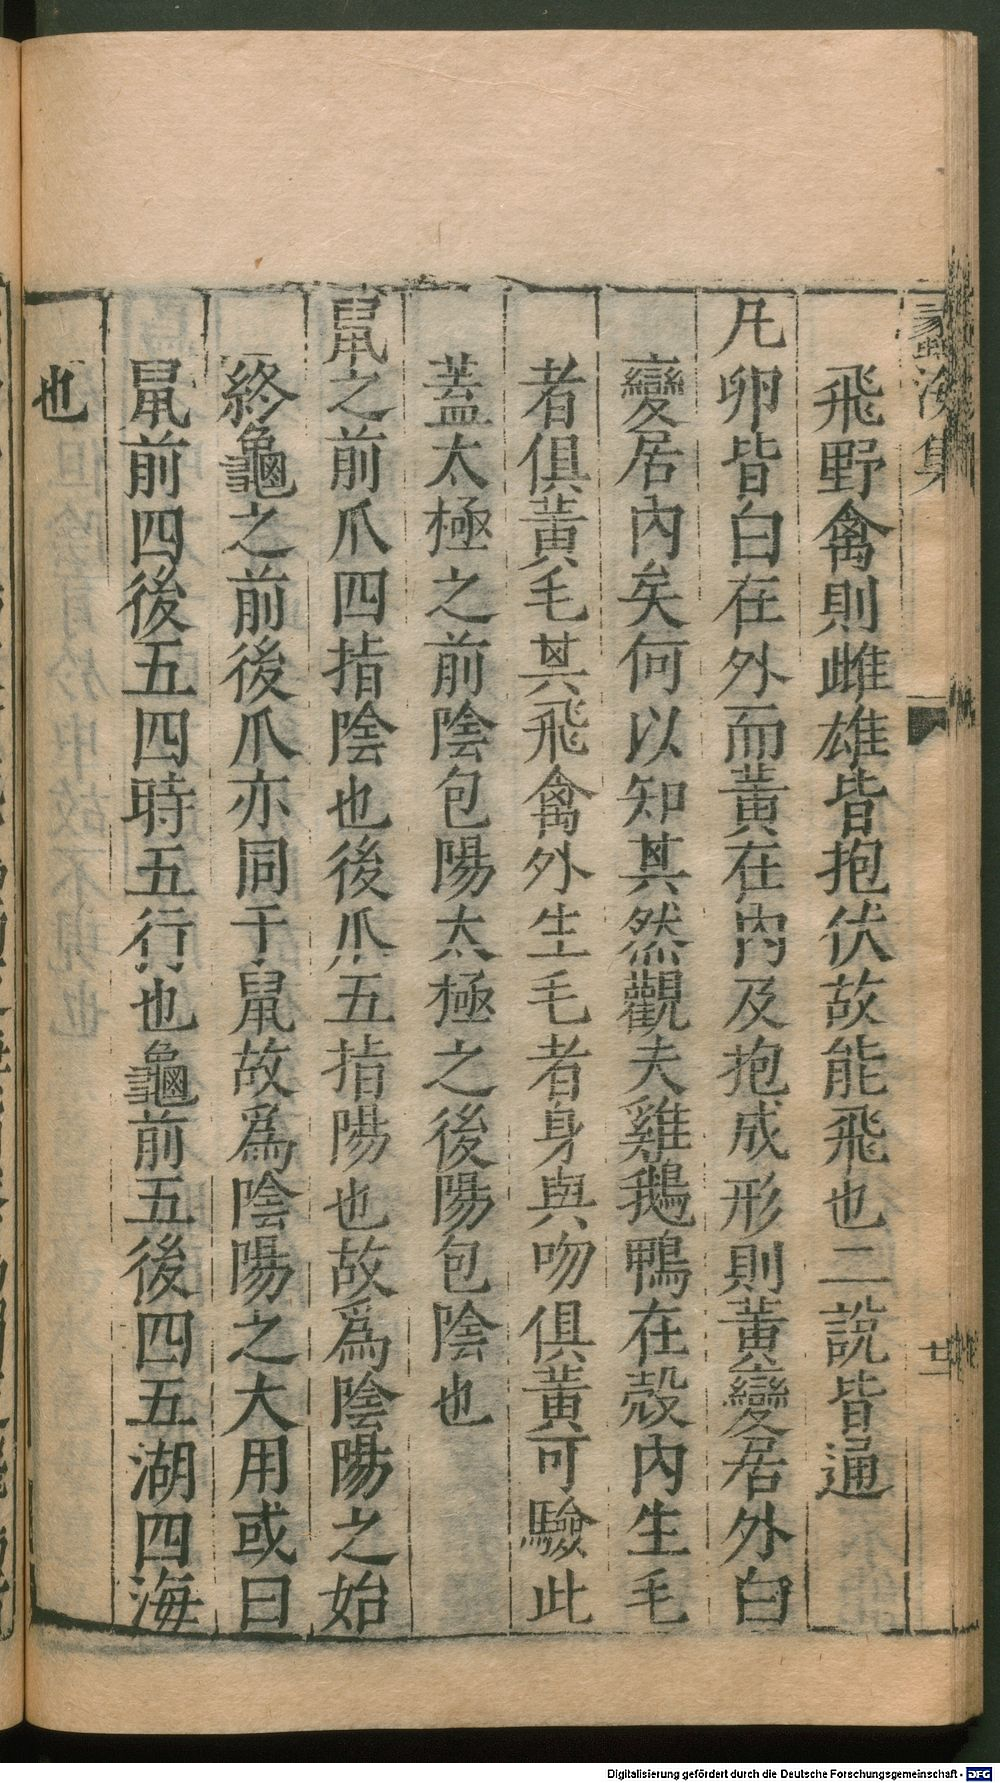 蠡海集
廿一
飛野禽則雌雄皆抱伏故能飛也二説皆通
凡卵皆白在外而黃在內及抱成形則黃變居外白
變居內矣何以知其然觀夫雞鵝鴨在殼內生毛
者俱黃毛其飛禽外生毛者身與吻俱黃可驗此
蓋太極之前陰包陽太極之後陽包陰也
鼠之前爪四指陰也後爪五指陽也故爲陰陽之始
終龜之前後爪亦同于鼠故爲陰陽之大用或曰
鼠前四後五四時五行也龜前五後四五湖四海
也
Digitalisierung gefördert durch die Deutsche Forschungsgemeinschaft - DFG